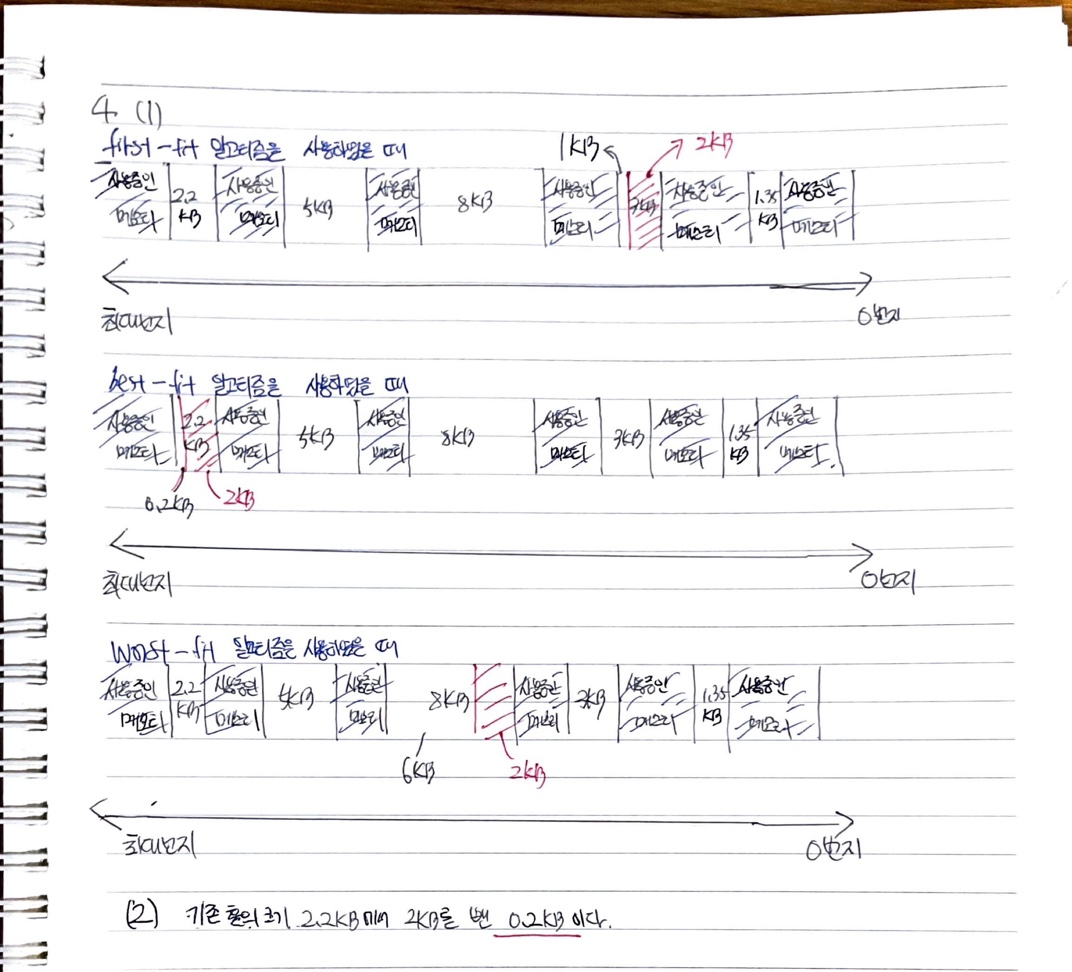 4. (1)
first-fit 알고리즘을 사용하였을 때
1KB 2KB
사용중인 메모리 2.2 KB 사용중인 메모리 5KB 사용중인 메모리 8KB 사용중인 메모리 3KB 사용중인 메모리 1.35 KB 사용중인 메모리
최대번지 0번지
best-fit 알고리즘을 사용하였을 때
사용중인 메모리 2.2 KB 사용중인 메모리 5KB 사용중인 메모리 8KB 사용중인 메모리 3KB 사용중인 메모리 1.35 KB 사용중인 메모리
0.2KB 2KB
최대번지 0번지
worst-fit 알고리즘을 사용하였을 때
사용중인 메모리 2.2 KB 사용중인 메모리 5KB 사용중인 메모리 8KB 사용중인 메모리 3KB 사용중인 메모리 1.35 KB 사용중인 메모리
6KB 2KB
최대번지 0번지
(2) 기존 홀의 크기 2.2KB에서 2KB를 뺀 0.2KB이다.